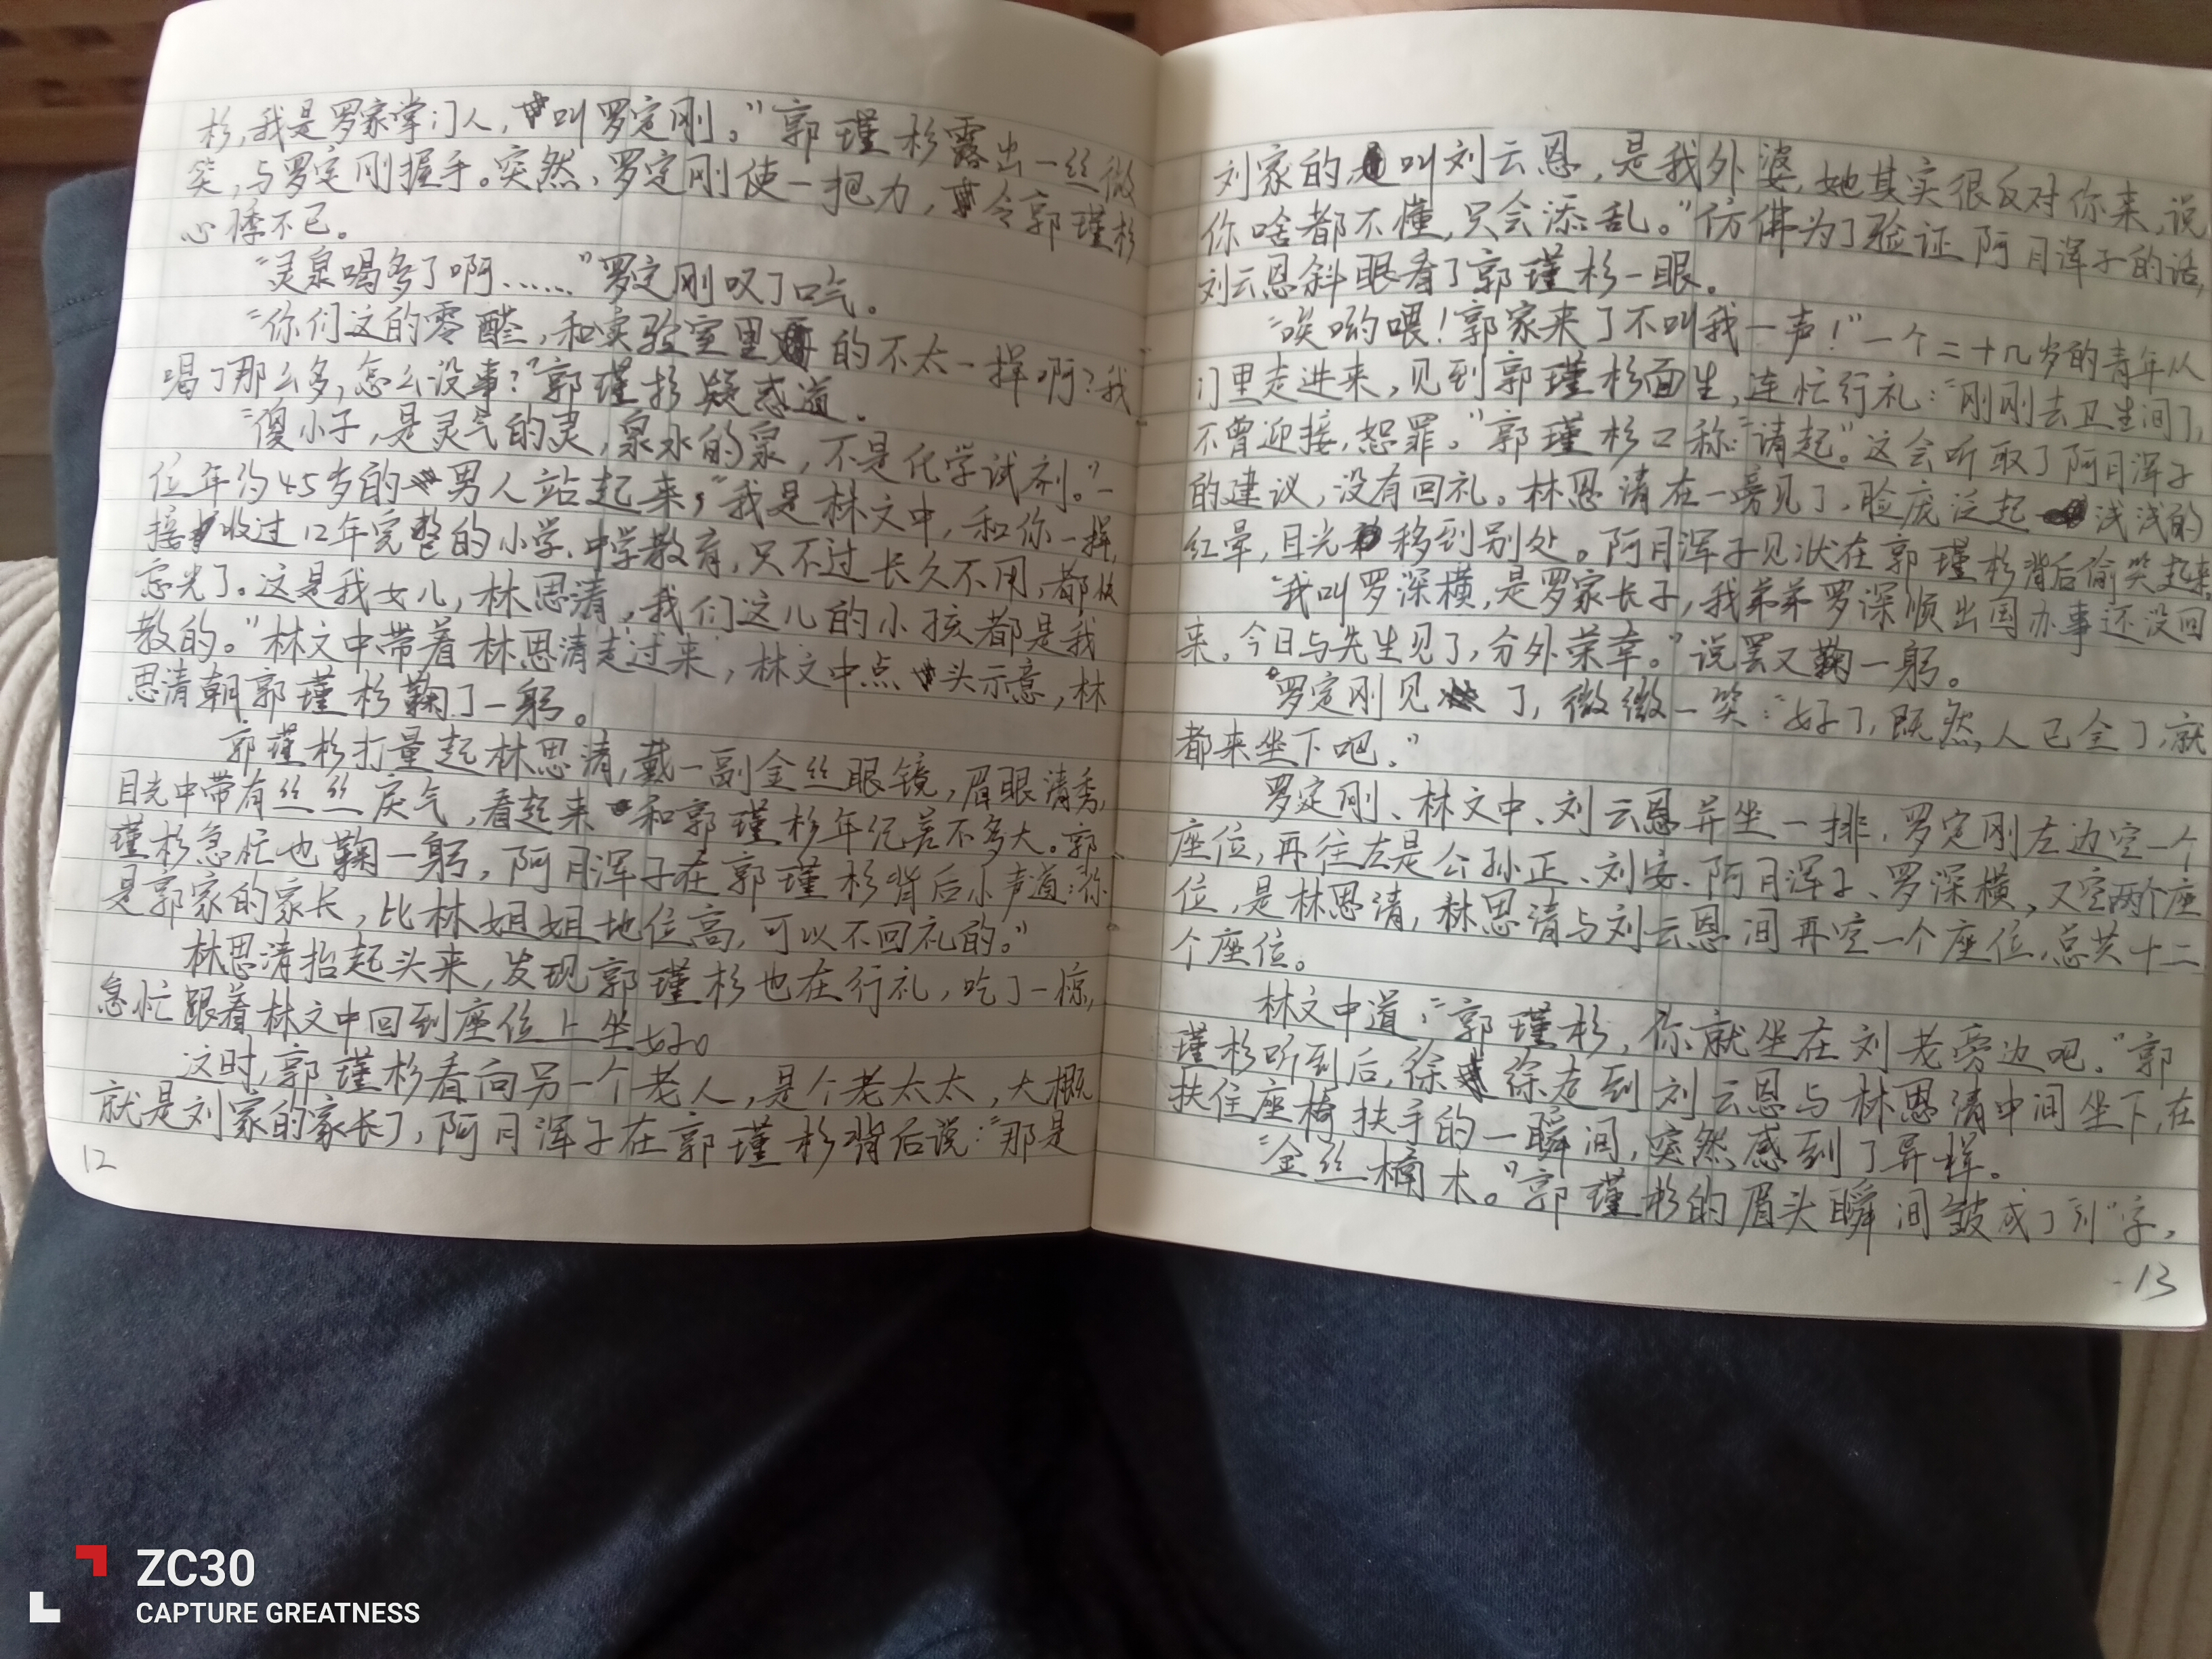 杉，我是罗家掌门人，叫罗定刚。”郭瑾杉露出一丝微
笑，与罗定刚握手。突然，罗定刚使一把力，令郭瑾杉
心悸不已。
“灵泉喝多了啊……”罗定刚叹了口气。
“你们这的零醛，和实验室里的不太一样啊？我
喝了那么多，怎么没事？”郭瑾杉疑惑道。
“傻小子，是灵气的灵，泉水的泉，不是化学试剂。”一
位年约45岁的男人站起来，“我是林文中，和你一样，
接收过12年完整的小学、中学教育，只不过长久不用，都快
忘光了。这是我女儿，林思清，我们这儿的小孩都是我
教的。”林文中带着林思清走过来，林文中点头示意，林
思清朝郭瑾杉鞠了一躬。
郭瑾杉打量起林思清，戴一副金丝眼镜，眉眼清秀，
目光中带有丝丝戾气，看起来和郭瑾杉年纪差不多大。郭
瑾杉急忙也鞠一躬，阿月浑子在郭瑾杉背后小声道：“你
是郭家的家长，比林姐姐地位高，可以不回礼的。”
林思清抬起头来，发现郭瑾杉也在行礼，吃了一惊，
急忙跟着林文中回到座位上坐好。
这时，郭瑾杉看向另一个老人，是个老太太，大概
就是刘家的家长了，阿月浑子在郭瑾杉背后说：“那是
12
刘家的，叫刘云恩，是我外婆，她其实很反对你来，说
你啥都不懂，只会添乱。”仿佛为了验证阿月浑子的话，
刘云恩斜眼看了郭瑾杉一眼。
“唉哟喂！郭家来了不叫我一声！”一个二十几岁的青年从
门里走进来，见到郭瑾杉面生，连忙行礼：“刚刚去卫生间了，
不曾迎接，恕罪。”郭瑾杉口称：“请起”。这会听取了阿月浑子
的建议，没有回礼。林思清在一旁见了，脸庞泛起浅浅的
红晕，目光移到别处。阿月浑子见状在郭瑾杉背后偷笑起来。
“我叫罗深横，是罗家长子，我弟弟罗深顺出国办事还没回
来。今日与先生见了，分外荣幸。”说罢又鞠一躬。
罗定刚见了，微微一笑：“好了，既然人已全了，就
都来坐下吧。”
罗定刚、林文中、刘云恩并坐一排，罗定刚左边空一个
座位，再往左是公孙正、刘安、阿月浑子、罗深横，又空两个座
位，是林思清，林思清与刘云恩间再空一个座位，总共十二
个座位。
林文中道：“郭瑾杉，你就坐在刘老旁边吧。”郭
瑾杉听到后，徐徐走到刘云恩与林思清中间坐下，在
扶住座椅扶手的一瞬间，突然感到了异样。
“金丝楠木。”郭瑾杉的眉头瞬间皱成了“川”字，
13
ZC30
CAPTURE GREATNESS